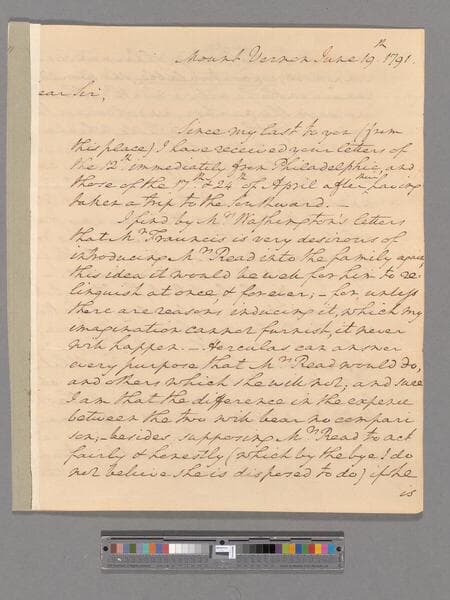 Mount Vernon June 19th 1791.
ear Sir,
Since my last to you (from
this place) I have received your letters of
the 12th immediately from Philadelphia, and
those of the 17th & 24th of April after having
taken a trip to the Southward. —
I find by Mrs Washington's letters
that Mr Fraunces is very desirous of
introducing Mrs Read into the family again
this idea it would be well for him to re-
linquish at once, & forever; — for, unless
there are reasons inducing it, which my
imagination cannot furnish, it never
will happen. — Herculas can answer
every purpose that Mrs Read would do,
and others which she will not; and sure
I am that the difference in the expence
between the two will bear no compari
son; — besides, supposing Mrs Read to act
fairly & honestly (which by the bye I do
not believe she is disposed to do) if she
is